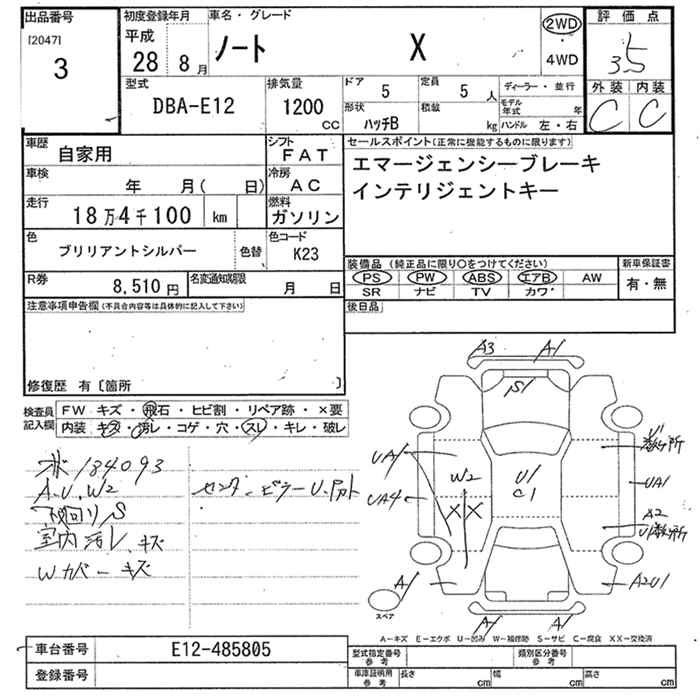 出品番号 初度登録年月 車名・グレード 評価点
[2047] 平成 2WD
3 28 8月 ノート X ・ 3.5
4WD
型式 排気量 ドア 5 定員 5人 ディーラー・並行 外装 内装
DBA-E12 1200 形状 積載 モデル年式 年 C C
CC ハッチB kg ハンドル 左・右
車歴 自家用 シフト FAT セールスポイント(正常に機能するものに限ります)
車検 年 月( 日) 冷房 AC エマージェンシーブレーキ
走行 18万4千100 km 燃料 ガソリン インテリジェントキー
色 ブリリアントシルバー 色替 色コード K23
装備品(純正品に限り○をつけてください) 新車保証書
R券 8,510円 名変通知期限 月 日 PS PW ABS エアB AW 有・無
SR ナビ TV カワ
注意事項申告欄(不具合内容等は具体的に記入して下さい) 後日品
修復歴 有〔箇所 〕
検査員 FW キズ・飛石・ヒビ割・リペア跡・×要
記入欄 内装 キズ・汚レ・コゲ・穴・スレ・キレ・破レ
A3 A1
S1
184093
A.U.W2
下回りS
室内汚レ、キズ
Wカバーキズ
センターピラーU.
UA1 W2 U1 U1
UA4 C1 UA1
XX A2
A1 A2U1
スペア A1 A1
A-キズ E-エクボ U-凹み W-補修跡 S-サビ C-腐食 XX-交換済
車台番号 E12-485805 型式指定番号 参考 類別区分番号 参考
登録番号 車庫証明用 参考 長さ cm 幅 cm 高さ cm